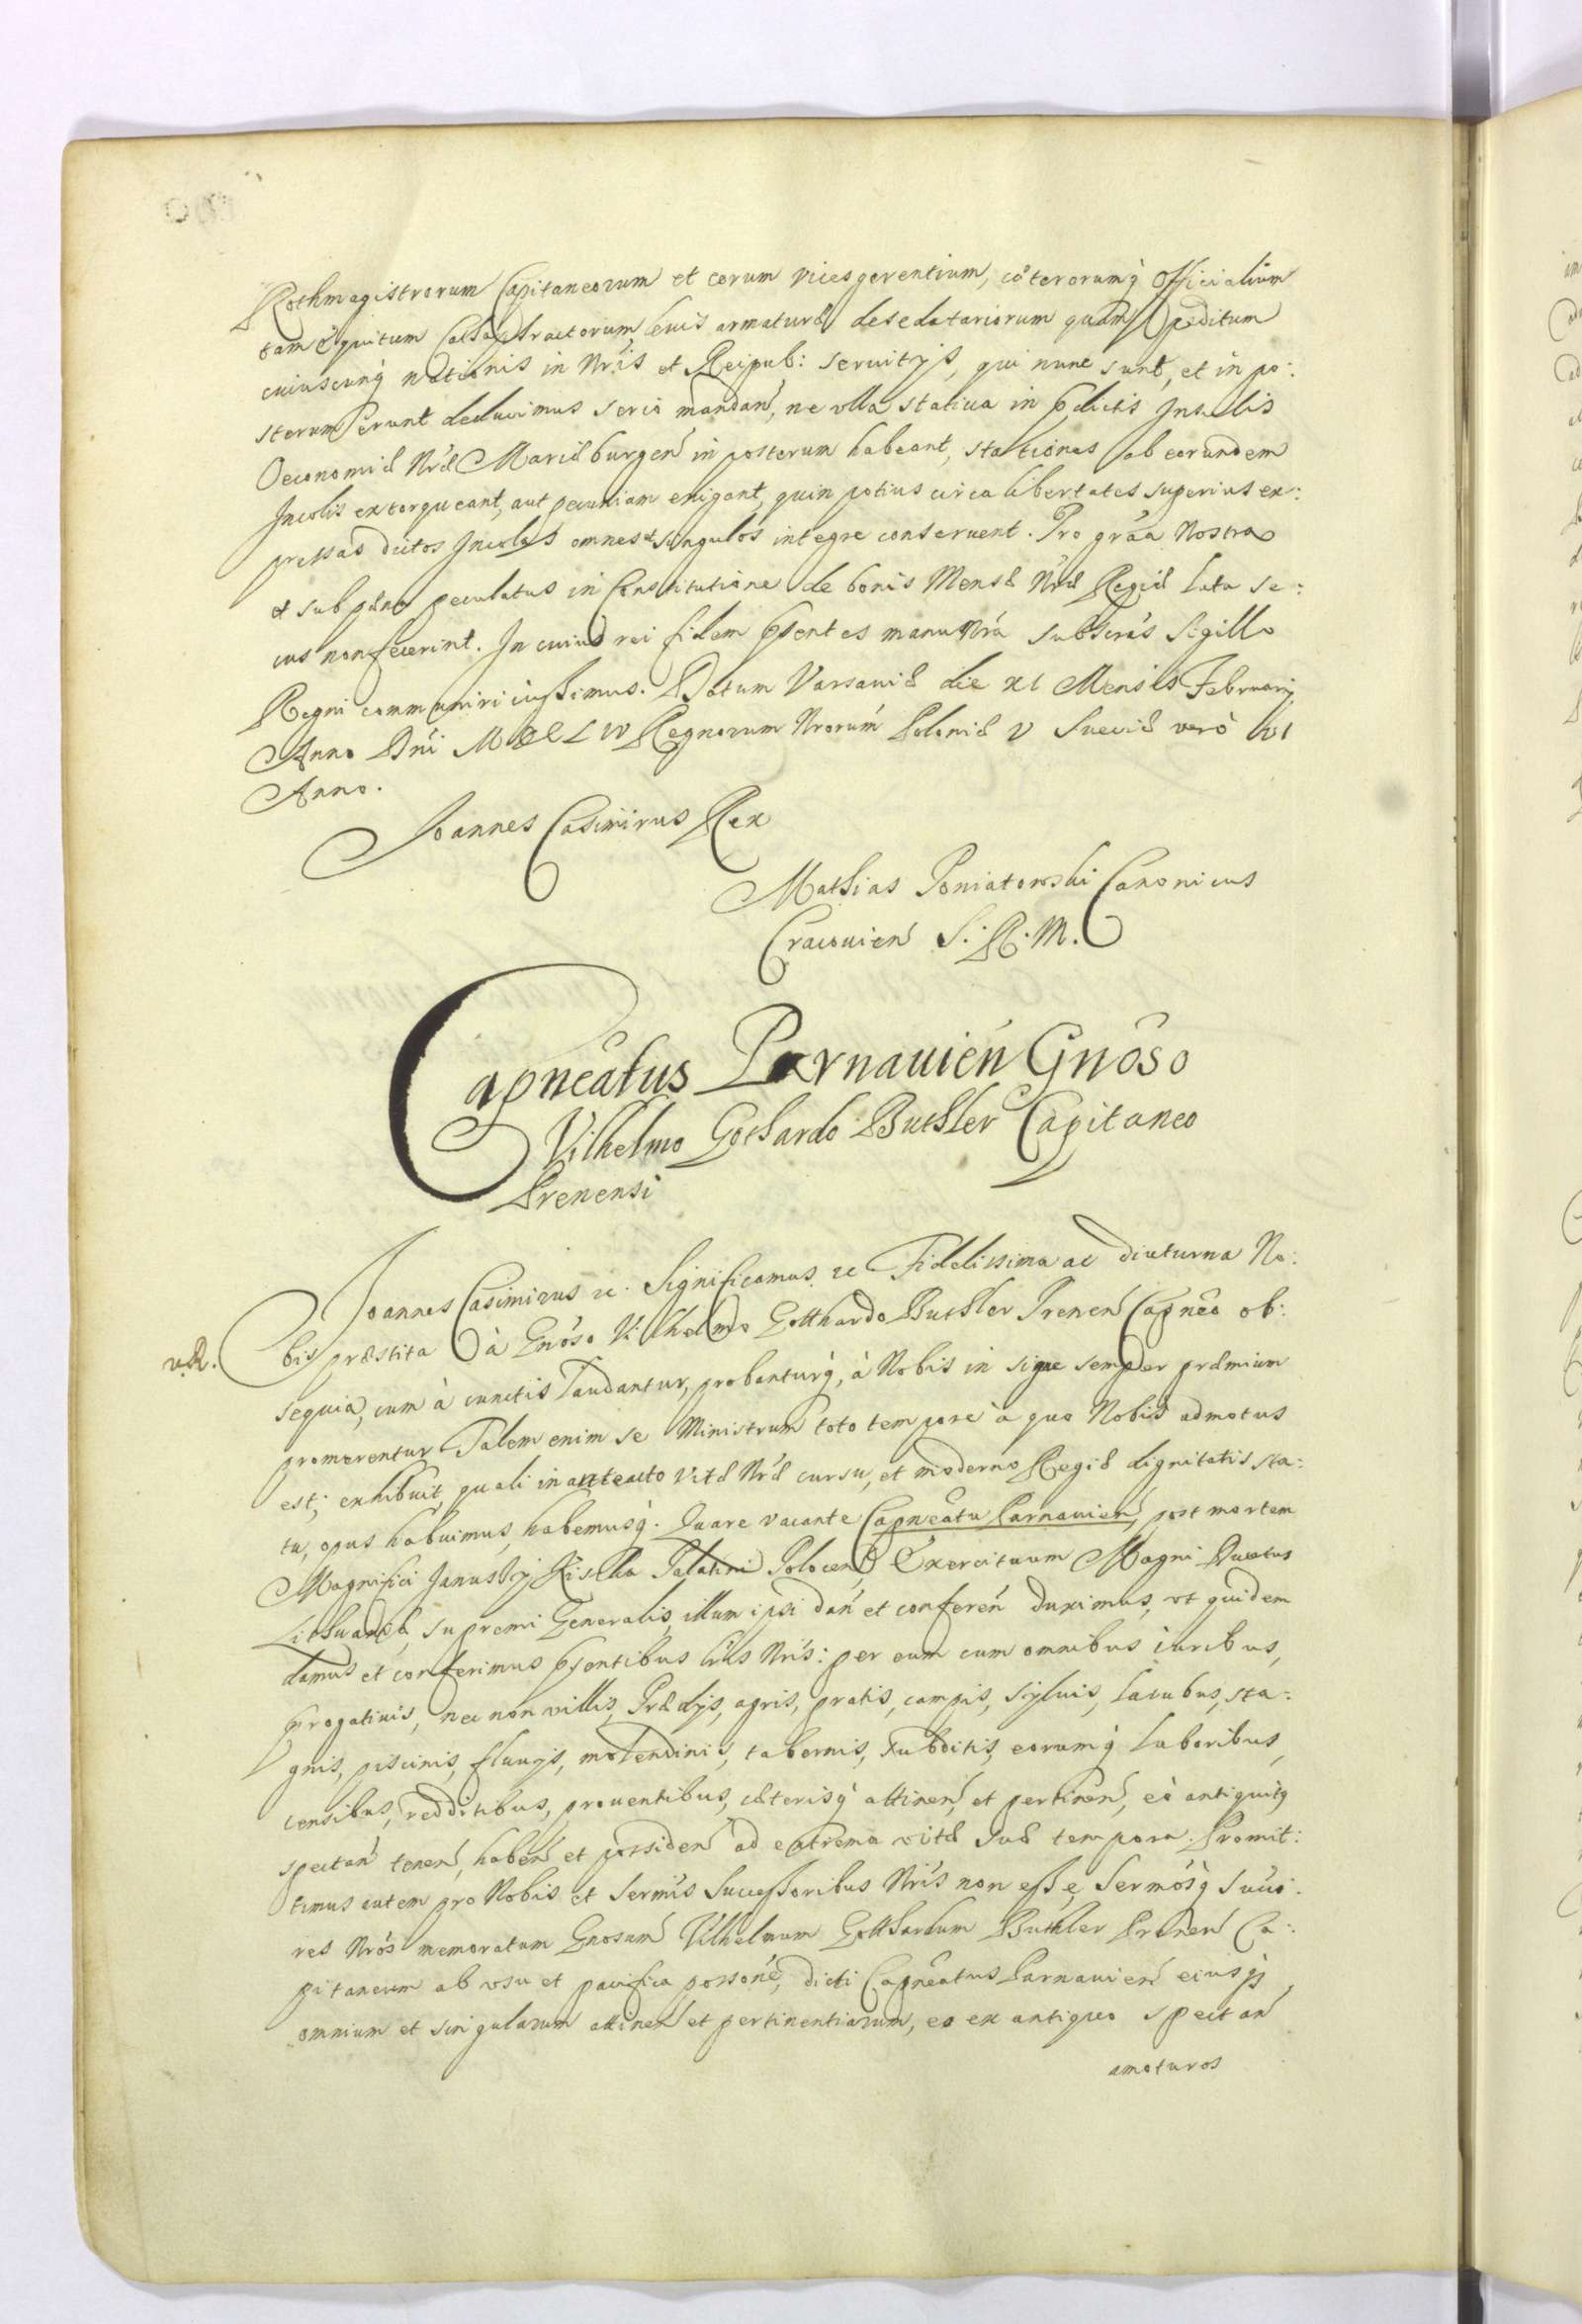 Rothmagistrorum Capitaneorum et eorum vices gerentium, coeterorumq́ Officialium
tam equitum Cathaphractorum, levis armaturæ desedatariorum quam peditum
cuiuscunq́ nationis in Nris et Reipub: servitijs, qui nunc sunt, et in po:
sterum erunt deduximus serio mandan̄, ne vlla statiua in p̄dictis Insulis
Oeconomiæ Nræ Mariæburgen̄ in posterum habeant, stationes ab eorundem
Incolis extorqueant, aut pecuniam exigant, quin potius circa libertates superius ex:
pressas dictos Incolas omnes et singulos integre conseruent. Pro gr̄aa Nostra
et sub pæna peculatus in Constitutione de bonis Mensæ Nræ Regiæ lata se:
cus non fecerint. In cuius rei fidem p̄sentes manu Nrá subscrás Sigillo
Regni communiri iussimus. Datum Varsauiæ die XI Mensis February
Anno Dn̄i MDCLIV Regnorum Nrorum Poloniæ V Sueciæ verò VI
Anno.
Joannes Casimirus Rex
Mathias Poniatowski Canonicus
Cracouien̄ S. R. M.
Capneatus Parnauien̄ Gnōso
Vilhelmo Gothardo Buthler Capitaneo
Prenensi
Joannes Casimirus &c. Significamus &c Fidelissima ac diuturna No:
vR.
bis præstita à Gnōso Vilhelmo Gotthardo Buthler Prenen̄ Capneo ob:
sequia, cum à cunctis laudantur, probanturq́, à Nobis in signe semper præmium
promerentur. Talem enim se Ministrum toto tempore à quo Nobis admotus
est, exhibuit, quali in anteacto Vitæ Nræ cursu, et moderno Regiæ dignitatis sta:
tu, opus habuimus, habemusq́. Quare vacante Capneatu Parnauien̄, post mortem
Magnifici Janussÿ Kiszka Palatini Polocen̄, Exercituum Magni Ducatus
Lithuaniæ, supremi Generalis, illum ipsi dan̄ et conferen̄ duximus, vt quidem
damus et conferimus p̄sentibus lr̄is Nris: per eum cum omnibus iuribus,
p̄rogatiuis, nec non villis, Prædijs, agris, pratis, campis, sÿluis, lacubus, sta:
gnis, piscinis, fluuijs, molendinis, tabernis, subditis, eorumq́ laboribus,
censibus, redditibus, prouentibus, cæterisq́ attinen̄, et pertinen̄, eò antiquitq
spectan̄ tenen̄, haben̄ et possiden̄ ad extrema vitæ suæ tempora. Promit:
timus autem pro Nobis et Sermis Successoribus Nris non esse, Sermosq́ Succ:
res Nros memoratum Gnosum Vilhelmum Gotthardum Buthler Prenen̄ Ca:
pitaneum ab vsu et pacifica possone, dicti Capneatus Parnauien̄ eiusq́
omnium et singularum attinen̄ et pertinentiarum, eo ex antiquo spectan̄
amoturos